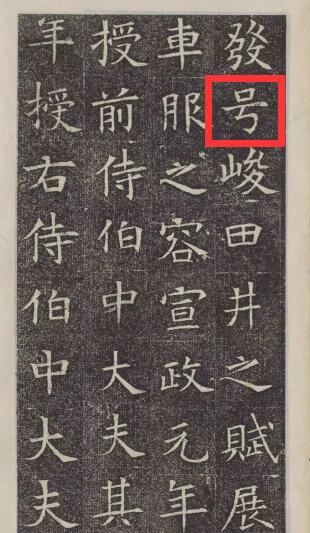 發号峻田井之賦展
車服之容宣政元年
授前侍伯中大夫其
年授右侍伯中大夫